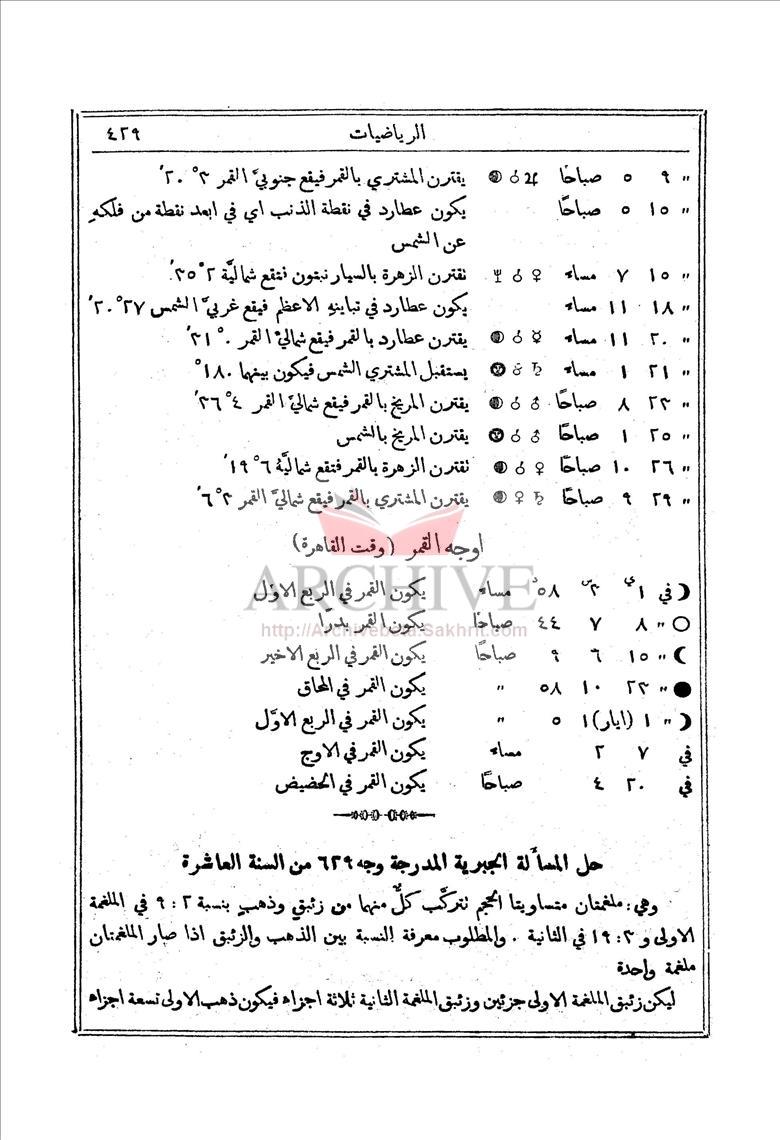 الرياضيات ٤٢٩
" ٩ ٥ صباحًا ♃ ☌ 🌑 يقترن المشتري بالقمر فيقع جنوبيَّ القمر ٣° ٢٠َ
" ١٥ ٥ صباحًا يكون عطارد في نقطة الذنب اي في ابعد نقطة من فلكهِ
عن الشمس
" ١٥ ٧ مساء ♀ ☌ ♆ نقترن الزهرة بالسيار نبتون فتقع شماليَّهُ ٢° ٣٥َ
" ١٨ ١١ مساء يكون عطارد في تباينهِ الاعظم فيقع غربيَّ الشمس ٢٧° ٢٠َ
" ٢٠ ١١ مساء ☿ ☌ يقترن عطارد بالقمر فيقع شماليَّ القمر ٠° ٣١َ
" ٢١ ١ مساء ♄ يستقبل المشتري الشمس فيكون بينهما ١٨٠°
" ٢٣ ٨ صباحًا ♂ ☌ يقترن المريخ بالقمر فيقع شماليَّ القمر ٤° ٣٦َ
" ٢٥ ١ صباحًا ♂ ☌ يقترن المريخ بالشمس
" ٢٦ ١٠ صباحًا ♀ ☌ نقترن الزهرة بالقمر فتقع شماليَّهُ ٦° ١٩َ
" ٢٩ ٩ صباحًا ♄ ♀ يقترن المشتري بالقمر فيقع شماليَّ القمر ٣° ٦َ
اوجه القمر (وقت القاهرة)
☽ في ١ ٣ ٥٨ مساء يكون القمر في الربع الاوَّل
ARCHIVE
○ " ٨ ٧ ٤٤ صباحًا يكون القمر بدرًا
http://Archivebeta.Sakhrit.com
☾ " ١٥ ٦ ٩ صباحًا يكون القمر في الربع الاخير
● " ٢٣ ١٠ ٥٨ " يكون القمر في المحاق
☽ " ١ (ايار) ١ ٥ " يكون القمر في الربع الاوَّل
في ٧ ٢ مساء يكون القمر في الاوج
في ٢٠ ٤ صباحًا يكون القمر في الحضيض
حل المسألة الجبرية المدرجة وجه ٦٣٩ من السنة العاشرة
وهي: ملغمتان متساويتا الحجم نتركَّب كلٌّ منهما من زئبق وذهب بنسبة ٢ : ٩ في الملغمة
الاولى و ٣ : ١٩ في الثانية . والمطلوب معرفة النسبة بين الذهب والزئبق اذا صار الملغمتان
ملغمة واحدة
ليكن زئبق الملغمة الاولى جزئين وزئبق الملغمة الثانية ثلاثة اجزاء فيكون ذهب الاولى تسعة اجزاء